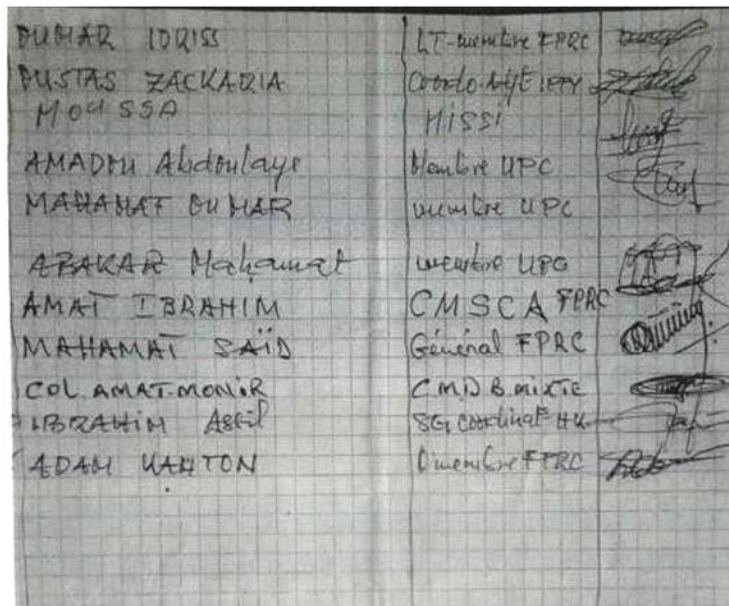 OUMAR IDRISS LT-membre FPRC
OUSTAS ZACKARIA Coordo
MOUSSA HISSI
AMADOU Abdoulaye Membre UPC
MAHAMAT OUMAR membre UPC
ABAKAR Mahamat membre UPC
AMAT IBRAHIM CMSCA FPRC
MAHAMAT SAÏD Général FPRC
COL. AMAT.MONIR C.M.D B.mixte
IBRAHIM Assil SG Coordinat°
ADAM KANTON membre FPRC